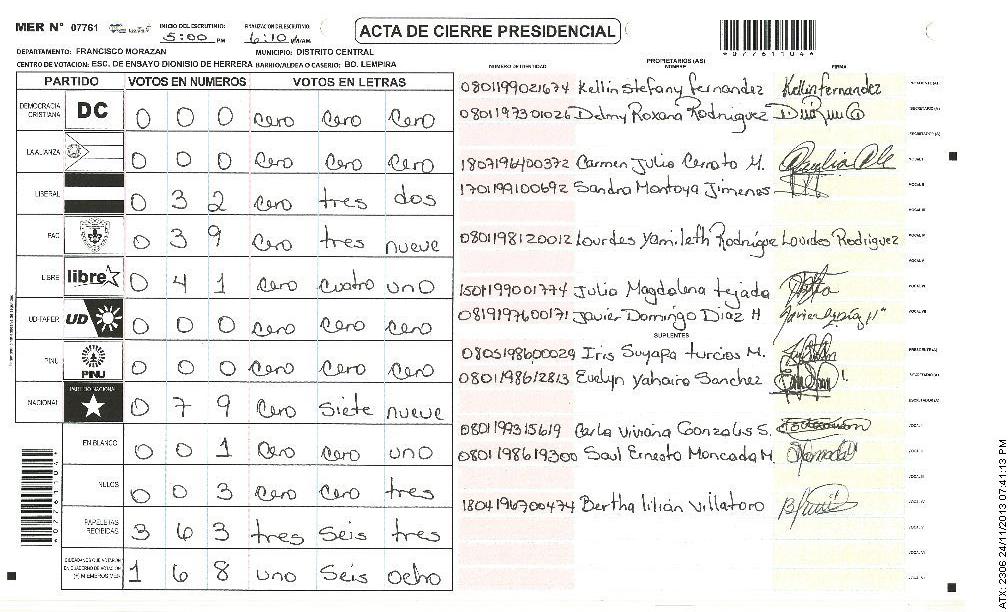 MER N° 07761 INICIO DEL ESCRUTINIO: 5:00 PM FINALIZACION ESCRUTINIO: 6:10 ACTA DE CIERRE PRESIDENCIAL
*077611044*
DEPARTAMENTO: FRANCISCO MORAZAN MUNICIPIO: DISTRITO CENTRAL
CENTRO DE VOTACION: ESC. DE ENSAYO DIONISIO DE HERRERA (BARRIO/ALDEA O CASERIO): BO. LEMPIRA
PARTIDO VOTOS EN NUMEROS VOTOS EN LETRAS
DEMOCRACIA CRISTIANA DC 0 0 0 cero cero cero
LA ALIANZA 0 0 0 cero cero cero
LIBERAL 0 3 2 cero tres dos
PAC 0 3 9 cero tres nueve
LIBRE libre 0 4 1 cero cuatro uno
UD-FAPER UD 0 0 0 cero cero cero
PINU PINU 0 0 0 cero cero cero
NACIONAL PARTIDO NACIONAL 0 7 9 cero siete nueve
EN BLANCO 0 0 1 cero cero uno
NULOS 0 0 3 cero cero tres
PAPELETAS RECIBIDAS 3 6 3 tres seis tres
CIUDADANOS QUE VOTARON EN CUADERNO DE VOTACION (+) MIEMBROS MER 1 6 8 uno seis ocho
NUMERO DE IDENTIDAD PROPIETARIOS (AS) NOMBRE FIRMA
0801199021674 Kellin stefany fernandez Kellin fernandez PRESIDENTE(A)
0801197301026 Delmy Roxana Rodriguez SECRETARIO(A)
ESCRUTADOR(A)
1807196400372 Carmen Julia Cerrato M. VOCAL I
1701199100692 Sandra Montoya Jimenes VOCAL II
VOCAL III
0801198120012 Lourdes Yamileth Rodrigue Lourdes Rodriguez VOCAL IV
VOCAL V
1501199001774 Julia Magdalena tejada VOCAL VI
0819197600171 Javier Domingo Diaz H VOCAL VII
SUPLENTES
0805198600029 Iris Suyapa turcios M. PRESIDENTE(A)
0801198612813 Evelyn Yahaira Sanchez SECRETARIO(A)
ESCRUTADOR(A)
0801199315619 Carla Viviana Gonzales S. VOCAL I
0801198619300 Saul Ernesto Moncada M. VOCAL II
VOCAL III
1804196700474 Bertha lilian villatoro VOCAL IV
VOCAL V
VOCAL VI
ATX: 2306 24/11/2013 07:41:13 PM